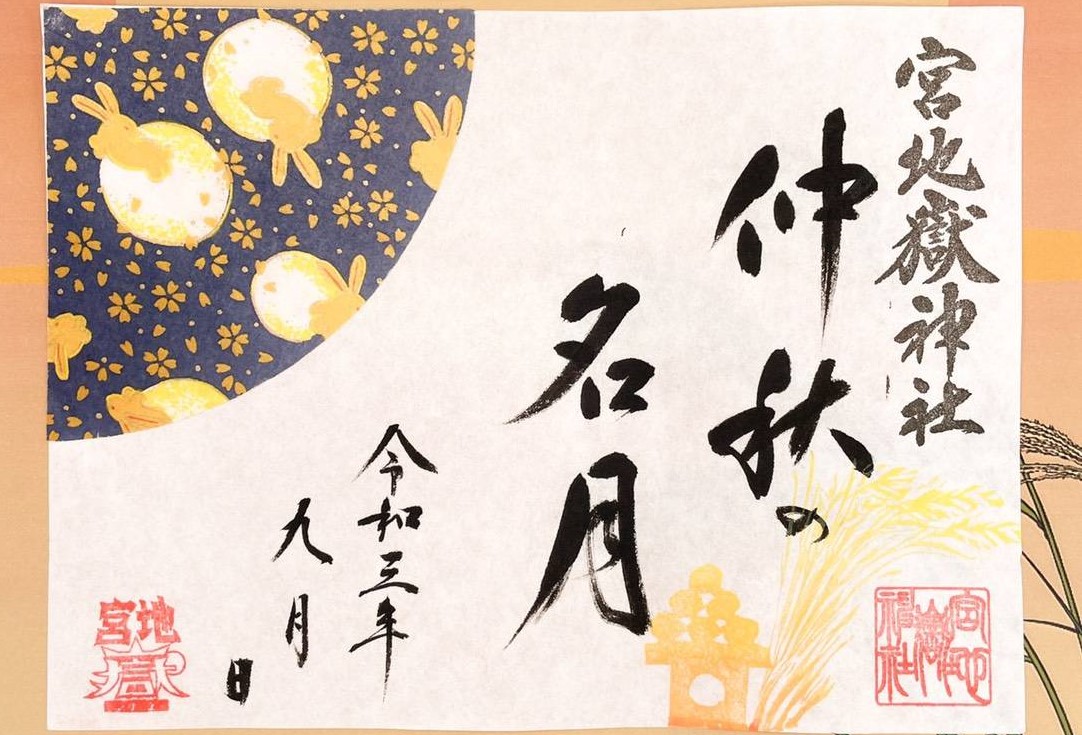 宮地嶽神社
仲秋の
名月
令和三年
九月
日
宮地嶽
神社
宮地
嶽